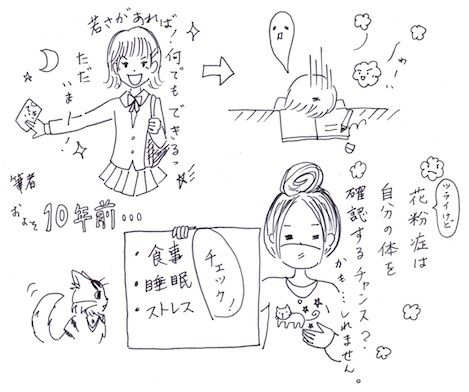 若さがあれば！
何でもできるっ
ただ
いまー！！
筆者
およそ
10年前…
ツライけど
花粉症は
自分の体を
確認するチャンス？
かも…しれません。
チェック！
・食事
・睡眠
・ストレス